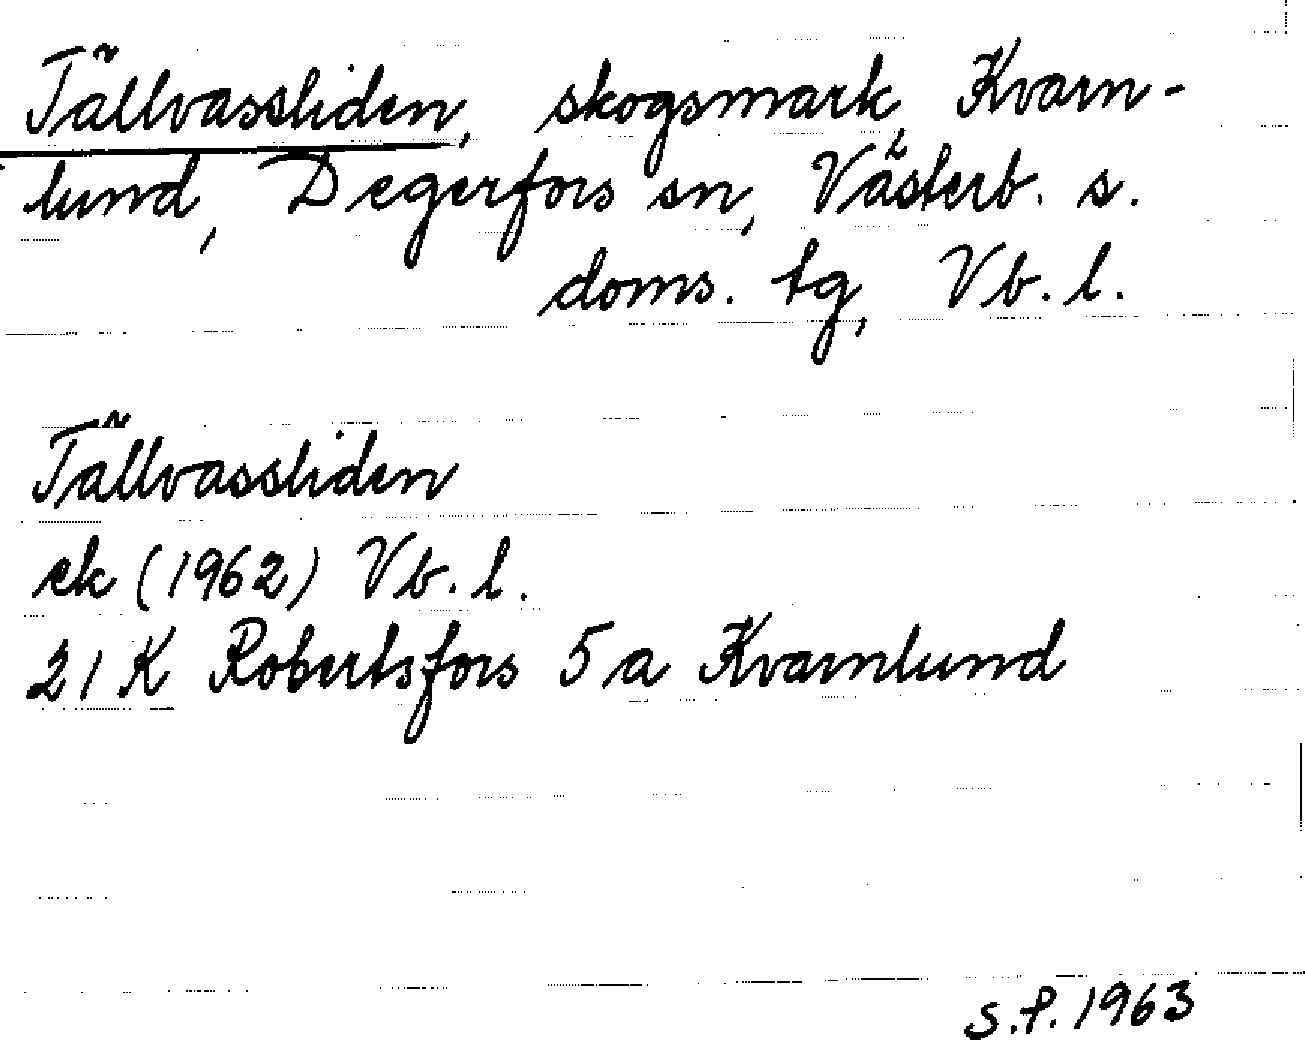 Tällvassliden, skogsmark, Kvarn-
lund, Degerfors sn, Västerb. s.
doms. tg, Vb. l.
Tällvassliden
ek (1962) Vb. l.
21 K Robertsfors 5 a Kvarnlund
S.P. 1963